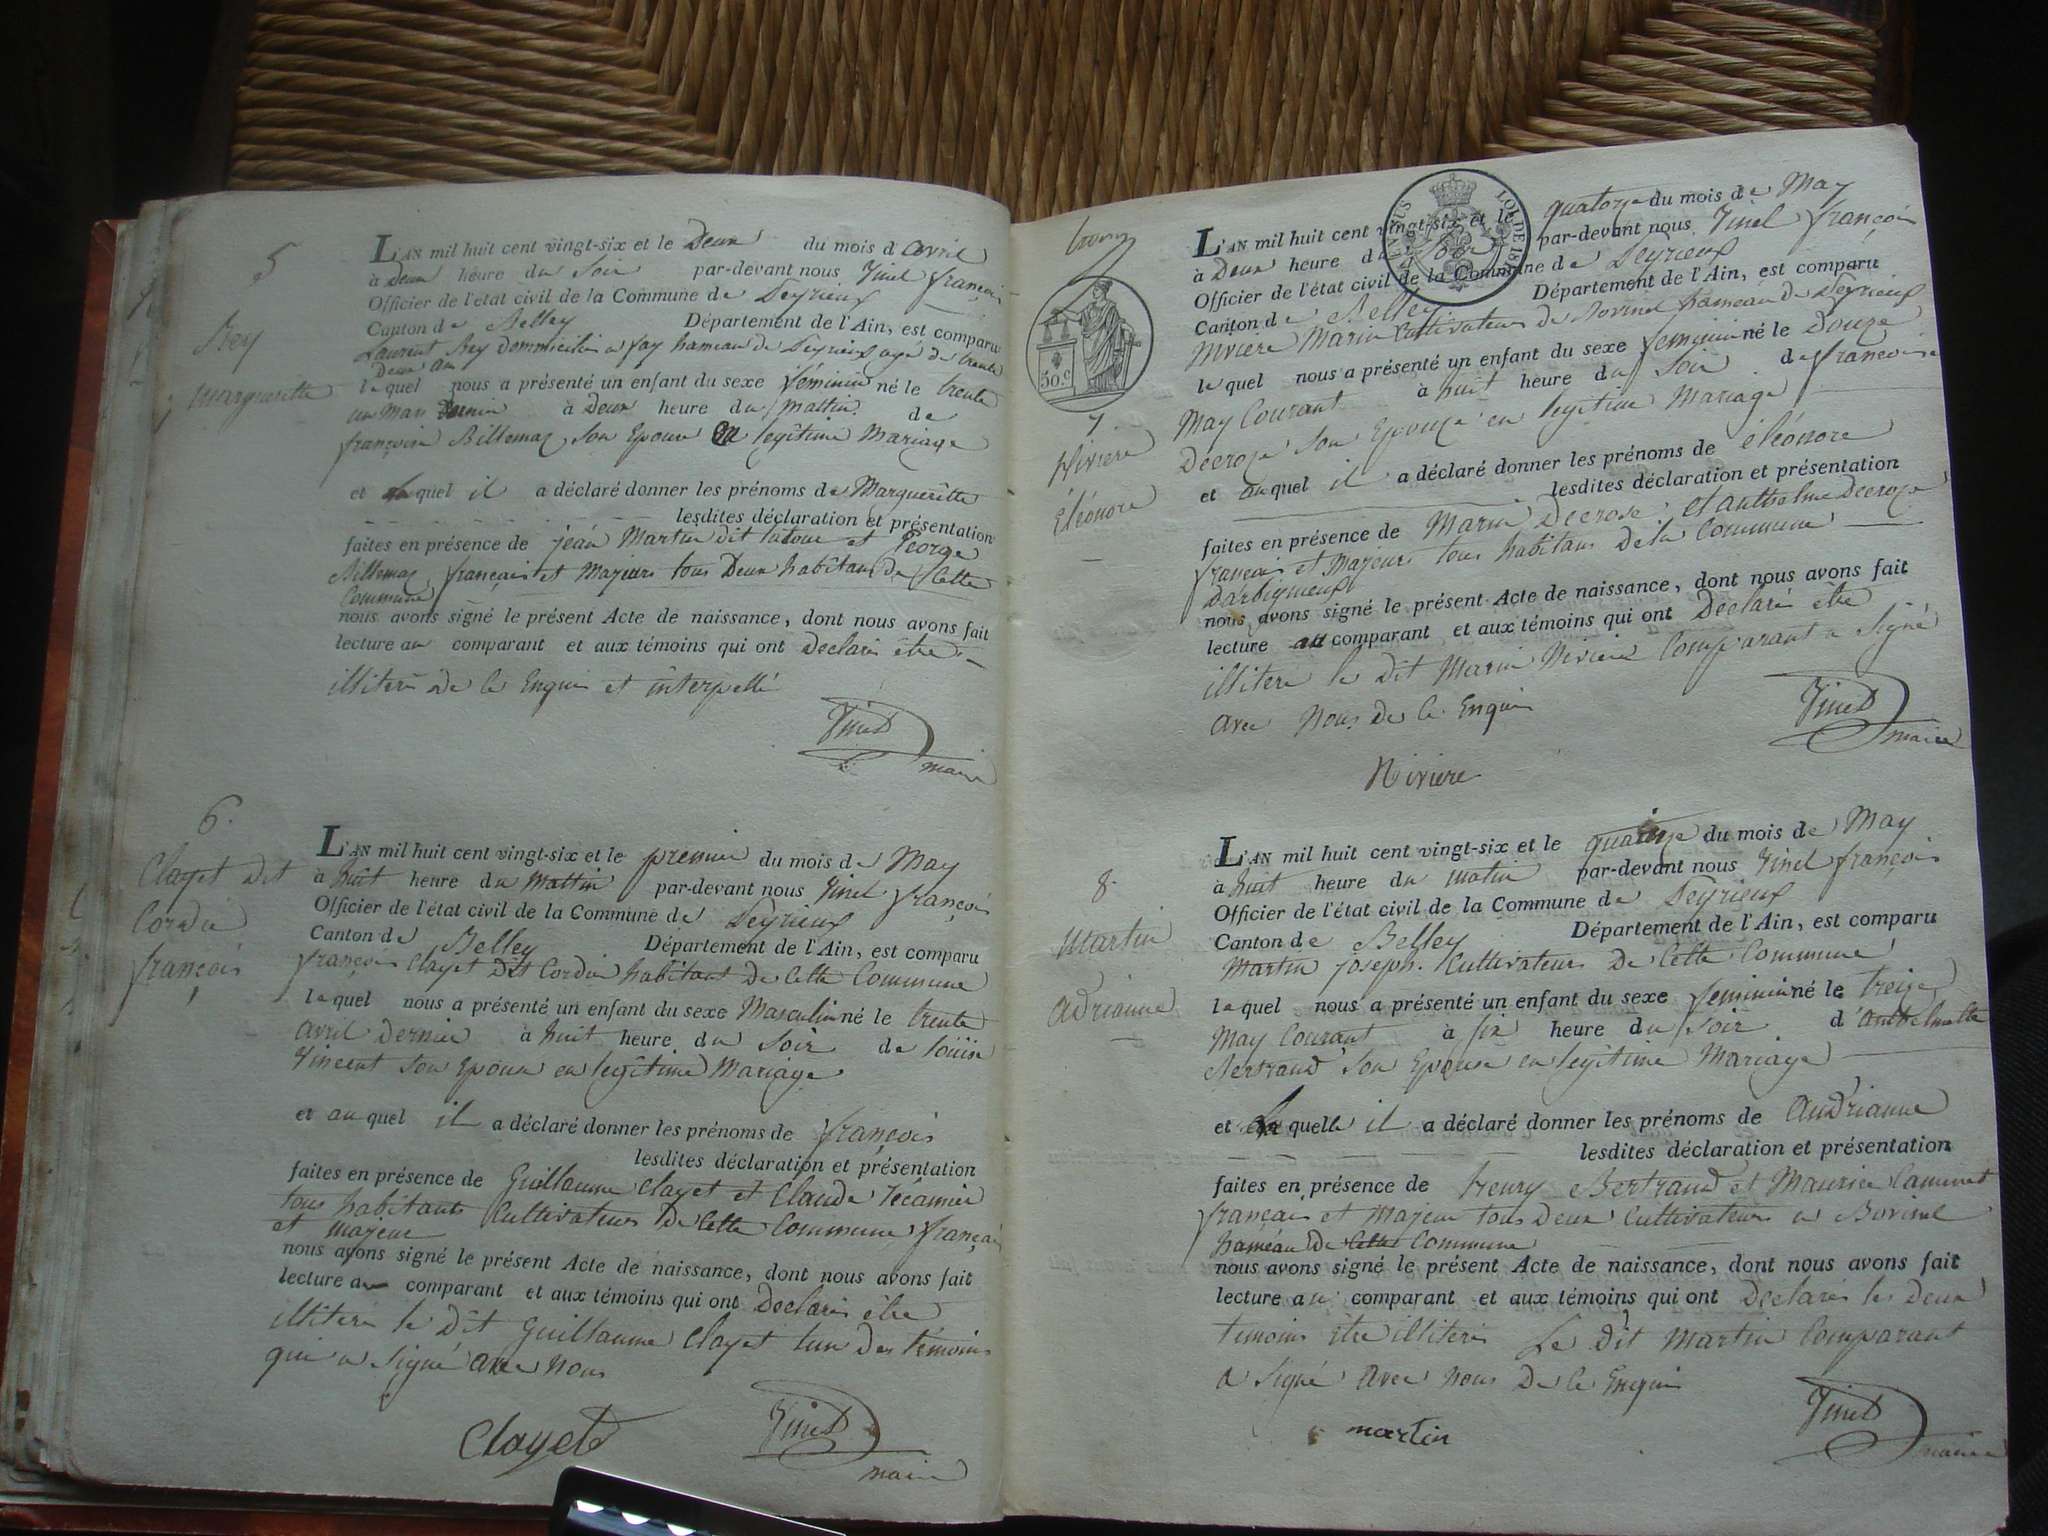 5
Rey
Margueritte
L'AN mil huit cent vingt-six et le Deux du mois d avril
à Deux heure du Soir par-devant nous Vinel françois
Officier de l'état civil de la Commune de Peyrieux
Canton de Belley Département de l'Ain, est comparu
Laurent Rey Dommicilié a fay hameau de Peyrieux agé de trente
Deux an
lequel nous a présenté un enfant du sexe féminin né le trente
un Mars Dernier à Deux heure du Mattin de
françoise Billemaz, son Epouse en legîtime Mariage
et laquel il a déclaré donner les prénoms de Margueritte
lesdites déclaration et présentation
faites en présence de jean Martin dit latour et George
Billemaz français et Majeurs tous Deux habitans de Cette
Commune
nous avons signé le présent Acte de naissance, dont nous avons fait
lecture au comparant et aux témoins qui ont Declarés être
illiteré de le Enquis et interpellé
Vinel
maire
6.
Clayet Dit
Cordié
françois
L'AN mil huit cent vingt-six et le premier du mois de May
à huit heure du Mattin par-devant nous Vinel françois
Officier de l'état civil de la Commune de Peyrieux
Canton de Belley Département de l'Ain, est comparu
françois Clayet Dit Cordié habitant de Cette Commune
lequel nous a présenté un enfant du sexe Masculin né le trente
Avril Dernier à huit heure du Soir de loüise
Vincent son Epouse en legîtime Mariage
et auquel il a déclaré donner les prénoms de françois
lesdites déclaration et présentation
faites en présence de Guillaume Clayet et Claude Récamier
tous habitants Cultivateurs de Cette Commune, français
et majeur
nous avons signé le présent Acte de naissance, dont nous avons fait
lecture au comparant et aux témoins qui ont Declarés être
illiterés le Dit Guillaume Clayet l'un Des témoins
qui a Signé avec nous
Clayet
Vinel
maire
50.c
LOI DE 181
7
Riviere
Eléonore
L'AN mil huit cent vingt-six et le quatorze du mois de May
à Deux heure du Soir par-devant nous Vinel françois
Officier de l'état civil de la Commune de Peyrieux
Canton de Belley Département de l'Ain, est comparu
Riviere Marin Cultivateur de Bovinel hameau de Peyrieux
lequel nous a présenté un enfant du sexe feminin né le Douze
May Courant à huit heure du Soir de francoise
Decroze son Epouze en legîtime Mariage
et auquel il a déclaré donner les prénoms de éléonore
lesdites déclaration et présentation
faites en présence de Marin Decroze et anthelme Decroze
français et Majeurs tous habitans De la Commune
Darbigneux
nous avons signé le présent Acte de naissance, dont nous avons fait
lecture au comparant et aux témoins qui ont Declarés être
illitere le Dit Marin Riviere Comparant a Signé
avec Nous De le Enquis
Vinel
maire
Riviere
8.
Martin
Adrianne
L'AN mil huit cent vingt-six et le quatorze du mois de May
à huit heure du matin par-devant nous Vinel françois
Officier de l'état civil de la Commune de Peyrieux
Canton de Belley Département de l'Ain, est comparu
Martin joseph. Cultivateur De Cette Commune
lequel nous a présenté un enfant du sexe feminin né le treize
May Courant à six heure du Soir d'anthelmette
Bertrand son Epouse en legîtime Mariage
et la quelle il a déclaré donner les prénoms de Andrianne
lesdites déclaration et présentation
faites en présence de henry Bertrand et Maurice Caminet
français et Majeur tous Deux Cultivateurs a Bovinel
haméau De Cette Commune
nous avons signé le présent Acte de naissance, dont nous avons fait
lecture au comparant et aux témoins qui ont Declarés les Deux
temoins être illiterés Le Dit Martin Comparant
a Signé avec nous De le Enquis
Vinel
maire
martin